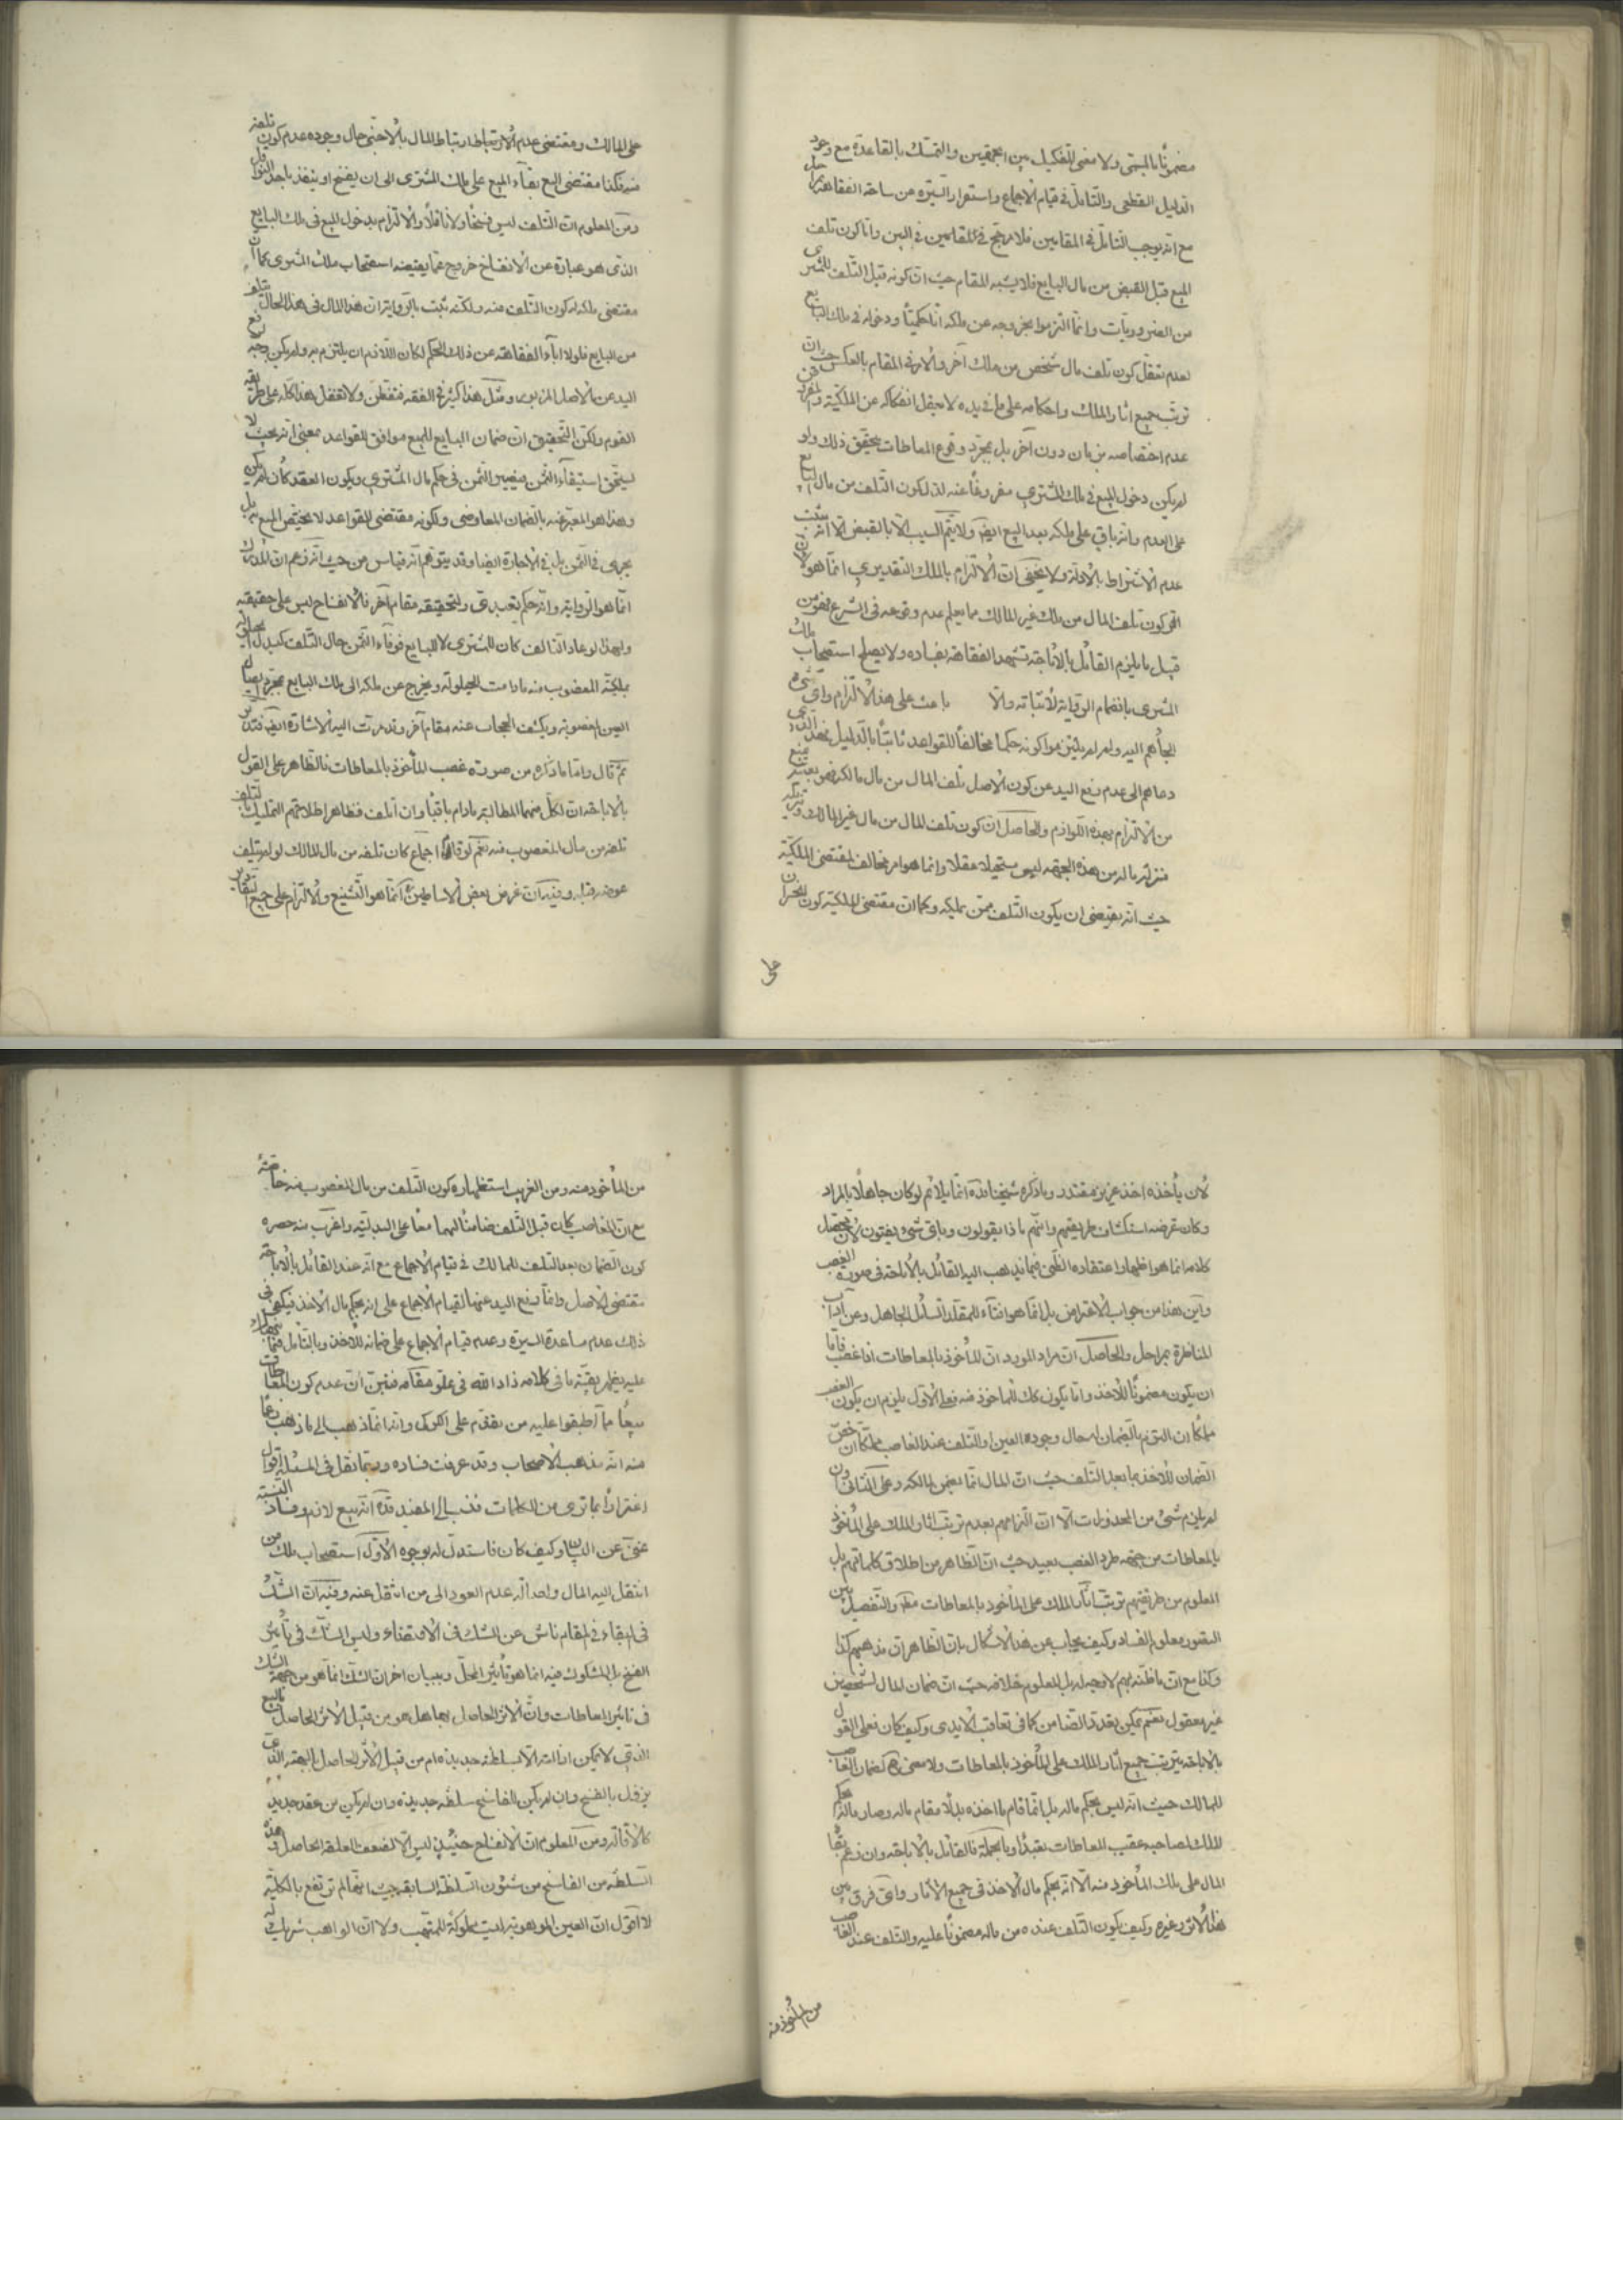 مضمونًا بالمسمّى ولا معنى للتفكيك بين الجهتين والتمسّك بالقاعدة مع وجود
الدليل القطعى والتأمّل فى قيام الاجماع واستقرار السّيرة من ساحة الفقاهة بمراحل
مع انّه يوجب التأمّل فى المقامين فلا مرجّح فى المقامين فى البين وامّا كون تلف
المبيع قبل القبض من مال البايع فلا يشبه المقام حيث انّ كونه قبل التّلف للمشترى
من الضروريّات وانّما التزموا بخروجه عن ملكه آنًا حكميًّا ودخوله فى ملك البايع
لعدم تعقّل كون تلف مال شخص من ملك آخر والامر فى المقام بالعكس حيث انّ
ترتّب جميع اثار الملك واحكامه على ما فى يده لا يعقل انفكاكه عن الملكيّة والمفروض
عدم اختصاصه بزمان دون آخر بل بمجرّد وقوع المعاطات يتحقّق ذلك ولو
لم يكن دخول المبيع فى ملك المشترى مفروغًا عنه لدلّ كون التّلف من مال البايع
على العدم وانّه باقٍ على ملكه بعد البيع ايضًا ولا يتمّ السبب الّا بالقبض الّا انّه يثبت
عدم الاشتراط بالادلّة ولا يخفى انّ الالتزام بالملك التقديرى انّما هو لانّ
كون تلف المال من ملك غير المالك ممّا يعلم عدم وقوعه فى الشرع فهو من
قبيل ما يلزم القائل بالاباحة تشهد الفقاهة بفساده ولا يصلح استصحاب ملك
المشترى بانضمام الرواية لاثباته والّا باعث على هذا الالتزام واى شىء
الجأهم اليه ولم لم يلتزموا كونه حكمًا مخالفًا للقواعد ثابتًا بالدليل فهذا الّذى
دعاهم الى عدم رفع اليد عن كون الاصل تلف المال من مال مالكه فهو بعينه يمنع
من الالتزام بهذه اللّوازم والحاصل انّ كون تلف المال من مال غير المالك وتنزيله
منزلة ماله من هذه الجهة ليس مستحيلًا عقلًا وانما هو امر مخالف لمقتضى الملكيّة
حيث انّه يقتضى ان يكون التّلف ممّن يملكه وكما انّ مقتضى الملكيّة كون الخسران
على
على المالك ومقتضى عدم الارتباط ارتباط المال بالاجنبىّ حال وجوده عدم كون تلفه
منه فكذا مقتضى البيع بقاء المبيع على ملك المشترى الى ان يفسخ او ينفذ باحد النواقل
ومن المعلوم انّ التّلف ليس فسخًا ولا ناقلًا والالتزام بدخول المبيع فى ملك البايع
الّذى هو عبارة عن الانفساخ خروج عمّا يقتضيه استصحاب ملك المشترى كما انّ
مقتضى ملكه كون التّلف منه ولكنّه ثبت بالرّواية انّ هذا المال فى هذا الحال تلف
من البايع فلولا اباء الفقاهة عن ذلك الحكم لكان اللّازم ان يلتزم به ولم يكن وجه لرفع
اليد عن الاصل المزبور ومثل هذا كثير فى الفقه فتفطّن ولا تغفل هذا كلّه على طريقة
القوم ولكن التّحقيق انّ ضمان البايع للمبيع موافق للقواعد بمعنى انّه بحيث لا
يستحقّ استيفاء الثّمن فيصير الثّمن فى حكم مال المشترى ويكون العقد كأن لم يكن
وهذا هو المعبّر عنه بالضمان المعاوضى ولكونه مقتضى للقواعد لا يختصّ المبيع به بل
يجرى فى الثّمن بل فى الاجارة ايضًا وقد يتوهّم انّه قياس من حيث انّه زعم انّ المدرك
انّما هو الرّواية وانّه حكم تعبّدى ولتحقيقه مقام آخر فالانفساخ ليس على حقيقته
ولهذا لو عاد التالف كان للمشترى لا للبايع فوفاء الثّمن حال التّلف كبدل الحيلولة
يملكه المغصوب منه مادامت الحيلولة ويخرج عن ملكه الى ملك البايع بمجرّد
العين المغصوبة ويكشف الحجاب عنه مقام آخر وقد مرّت اليه الاشارة ايضًا فتدبّر
ثمّ قال وامّا ما ذكره من صورة غصب المأخوذ بالمعاطات فالظاهر على القول
بالاباحة انّ لكلّ منهما المطالبة مادام باقيًا وان تلف فظاهر اطلاقهم التمليك بالتلف
تلفه من مال المغصوب منه نعم لو قام اجماع كان تلفه من مال المالك لو لم يتلف
عوضه قبله وفيه انّ غرض بعض الاساطين انّما هو التّشنيع والالتزام على جميع التقادير
لأن يأخذه اخذ عزيز مقتدر وما ذكره شيخنا قدّه انّما يلائم لو كان جاهلًا بالمراد
وكان غرضه استكشاف طريقتهم وانّهم ماذا يقولون وباىّ شىء يفتون لأن محصّل
كلامه انّما هو اظهار اعتقاده الظّنى فيما يذهب اليه القائل بالاباحة فى صورة الغصب
واين هذا من جواب الاعتراض بل انّما هو افتاء للمقلّد السّائل الجاهل وعن آداب
المناظرة بمراحل والحاصل انّ مراد المورد انّ المأخوذ بالمعاطات اذا غصب فامّا
ان يكون مضمونًا للآخذ وامّا يكون كك للمأخوذ منه فعلى الاوّل يلزم ان يكون الغصب
مملّكًا ان التزم بالضمان له حال وجود العين او التلف عند الغاصب مملّكًا ان خصّ
الضمان للآخذ بما بعد التلف حيث انّ المال انّما يضمن لمالكه وعلى الثانى وان
لم يلزم شىء من المحذورات الّا انّ التزامهم بعدم ترتّب اثار الملك على المأخوذ
بالمعاطات من جهة طروّ الغصب بعيد حيث انّ الظّاهر من اطلاق كلماتهم بل
المعلوم من طريقتهم ترتّب آثار الملك على المأخوذ بالمعاطات مط والتّفصيل بين
الصّور معلوم الفساد وكيف يجاب عن هذا الاشكال بانّ الظاهر انّ مذهبهم كذا
وكذا مع انّ ما ظنّه بهم لا وجه له بل المعلوم خلافه حيث انّ ضمان المال لشخصين
غير معقول نعم يمكن تعدّد الضّامن كما فى تعاقب الايدى وكيف كان فعلى القول
بالاباحة يترتّب جميع آثار الملك على المأخوذ بالمعاطات ولا معنى ح لضمان الغاصب
للمالك حيث انّه ليس بحكم ماله بل انّما قام ما اخذه بدلًا مقام ماله وصار ماله بحكم
الملك لصاحبه عقيب المعاطات تعبّدًا وبالجملة فالقائل بالاباحة وان زعم بقاء
المال على ملك المأخوذ منه الّا انّه بحكم مال الآخذ فى جميع الآثار واىّ فرق بين
هذا الاثر وغيره وكيف يكون التّلف عنده من ماله مضمونًا عليه والتّلف عند الغاصب
من المأخوذ منه
من المأخوذ منه ومن الغريب استظهاره كون التّلف من مال المغصوب منه خاصّة
مع انّ الغاصب كان قبل التّلف ضامنًا لهما معًا على البدليّة واغرب منه حصره
كون الضّمان بعد التلف للمالك فى قيام الاجماع مع انّه عند القائل بالاباحة
مقتضى الاصل وانّما رفع اليد عنها لقيام الاجماع على انّه بحكم مال الآخذ فيكفى فى
ذلك عدم مساعدة السيرة وعدم قيام الاجماع على ضمانه للآخذ وبالتأمّل فيما
عليه يظهر بقيّة ما فى كلامه زاد الله فى علوّ مقامه فتبيّن انّ عدم كون المعاطات
بيعًا ممّا اطبقوا عليه من تقدّم على الكركى وانّه انّما ذهب الى ما ذهب زعمًا
منه انّه مذهب الاصحاب وقد عرفت فساده وربّما نقل فى المسئلة اقوال
اغترارًا بما ترى من الكلمات فنسب الى المفيد قدّه انّه بيع لازم وفساد النسبة
غنىّ عن البيان وكيف كان فاستدلّ له بوجوه الاوّل استصحاب ملك من
انتقل اليه المال واصالة عدم العود الى من انتقل عنه وفيه انّ الشّكّ
فى البقاء فى المقام ناش عن الشّك فى الاقتضاء وليس الشّك فى تأثير
الفسخ بل المشكوك فيه انما هو تأثير المحلّ وببيان اخر انّ الشّكّ انّما هو من جهة الشّك
فى تاثير المعاطات وانّ الاثر الحاصل بها هل هو من قبيل الاثر الحاصل بالبيع
الّذى لا يمكن ازالته الّا بسلطنة جديدة ام من قبيل الأثر الحاصل بالهبة الّذى
يزول بالفسخ وان لم يكن للفاسخ سلطنة جديدة وان لم يكن من عقد جديد
كالاقالة ومن المعلوم انّ الانفساخ حينئذٍ ليس الّا لضعف العلقة الحاصلة فهذه
السّلطنة من الفاسخ من شئون السّلطنة السابقة حيث انّها لم ترتفع بالكليّة
لا اقول انّ العين الموهوبة ليست مملوكة للمتّهب ولا انّ الواهب شريك له